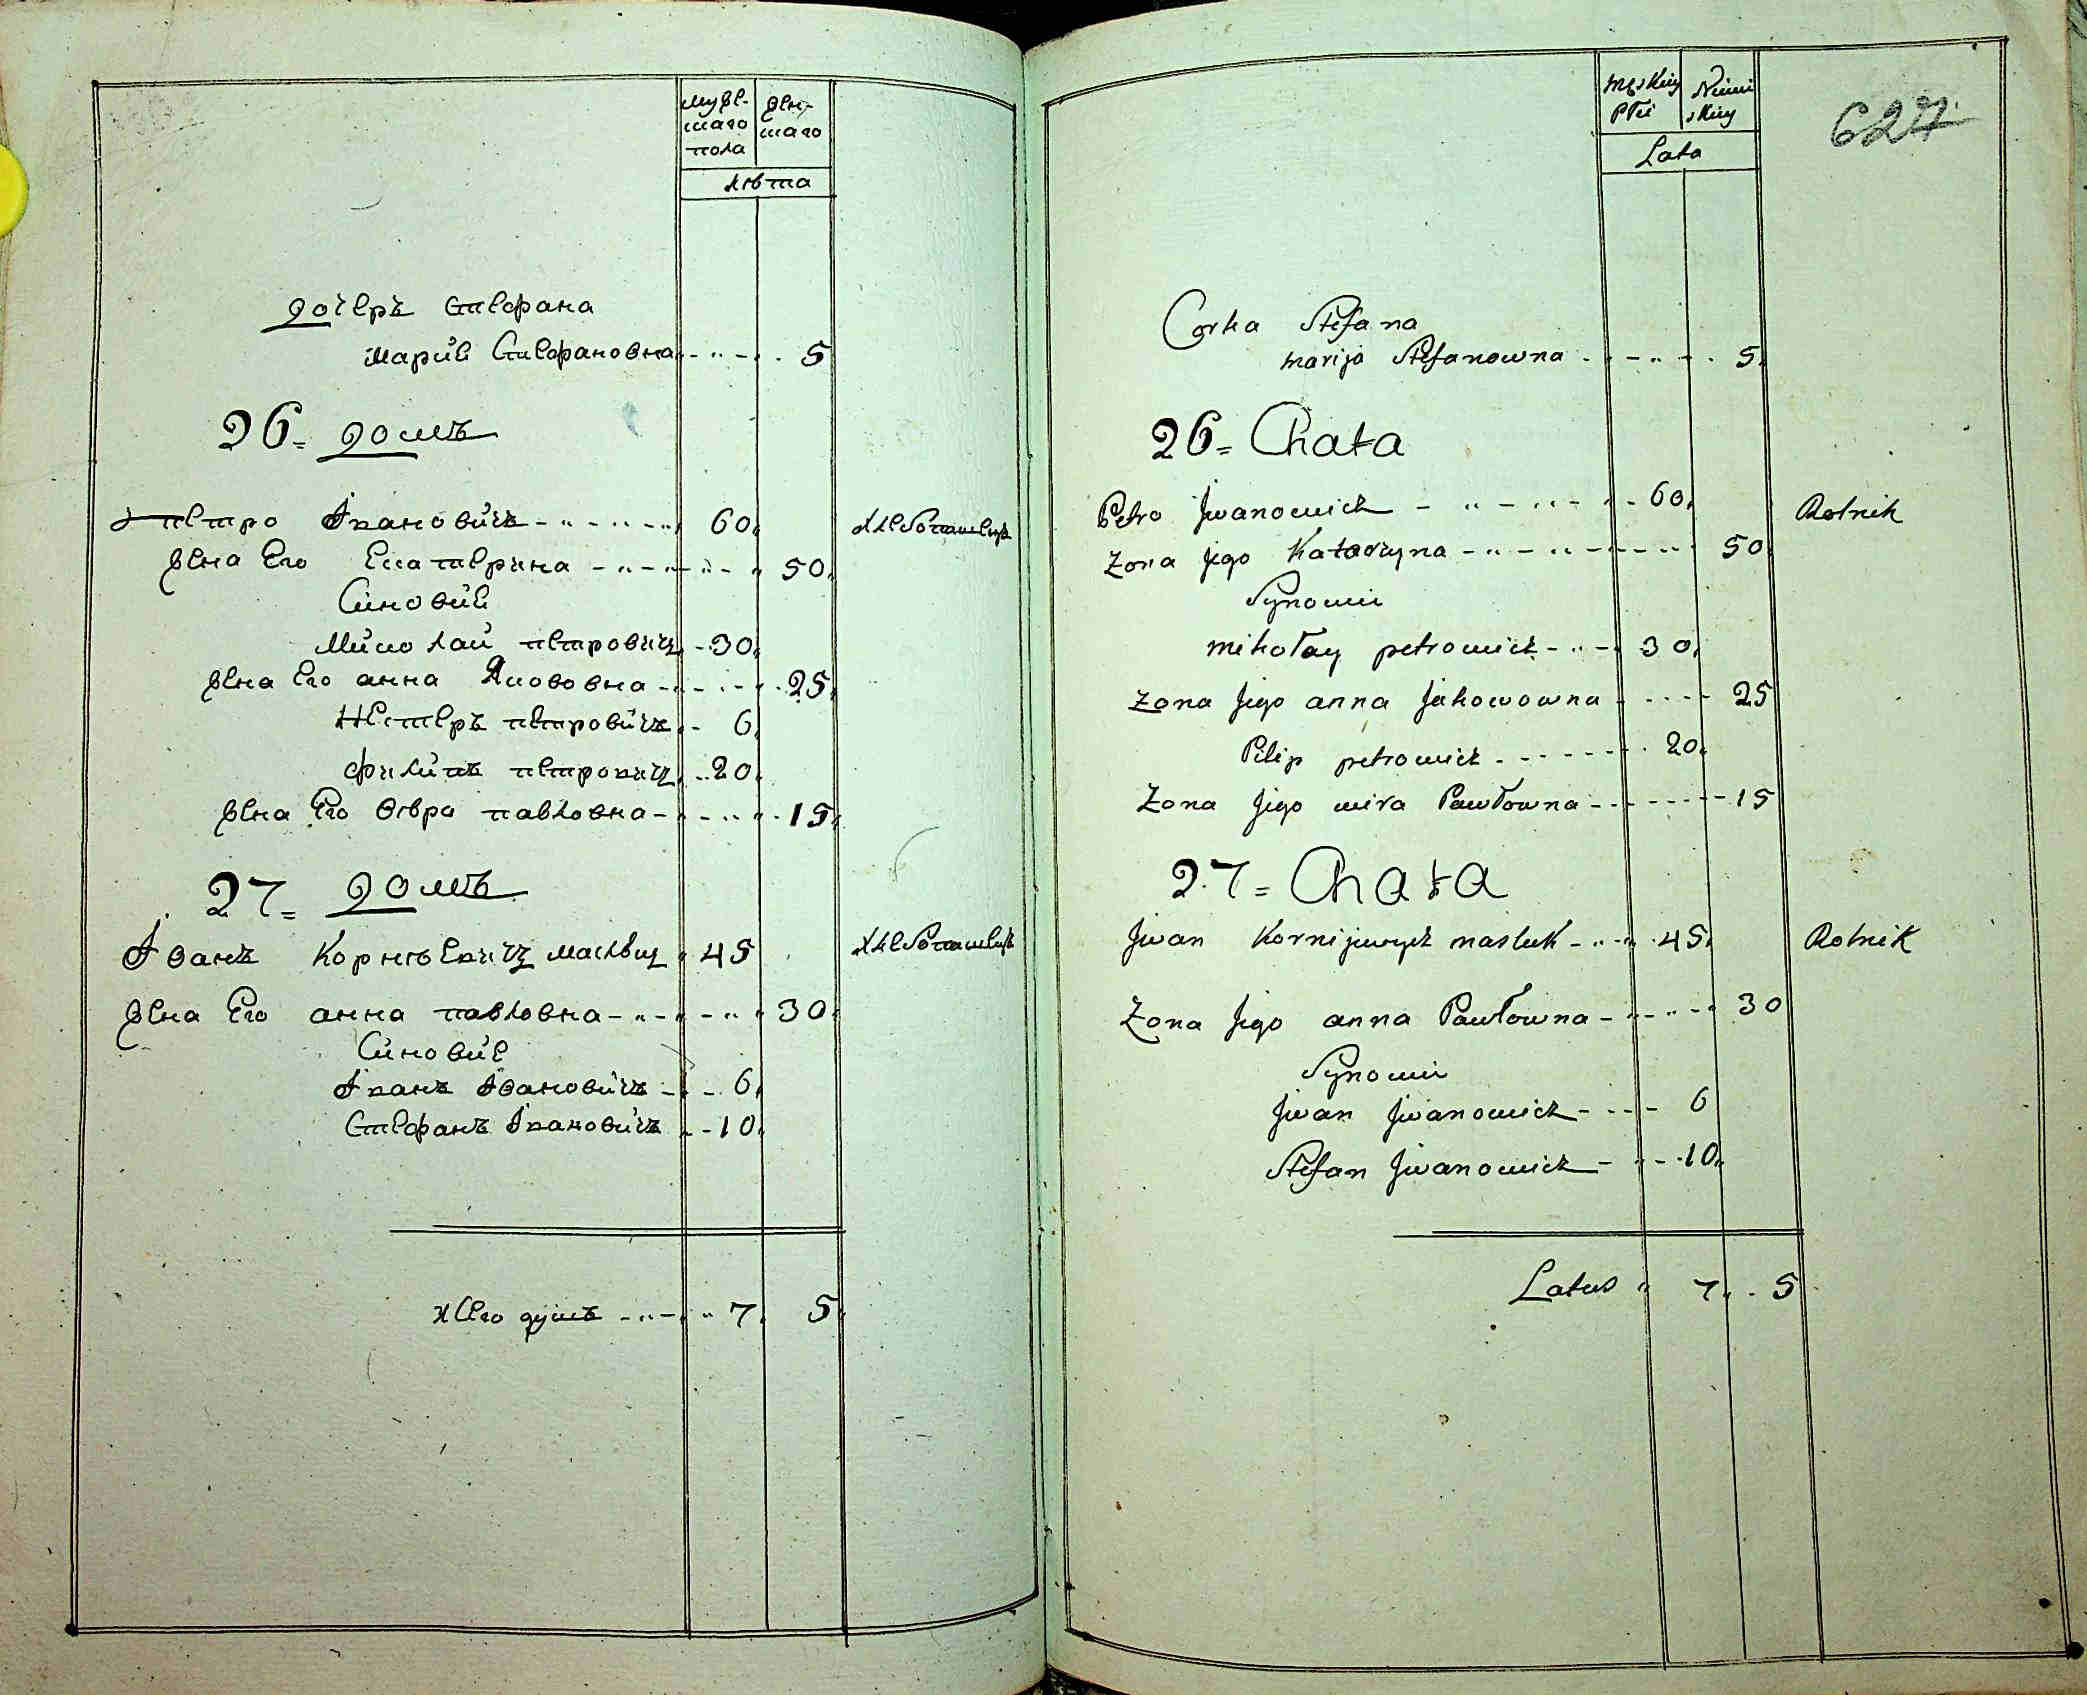 муже-
скаго
пола
жен-
скаго
лѣта
дочеръ Стефана
Марие Стефановна 5
26= домъ
Петро Ивановичъ 60
Хлебопашець
жена Его Екатерина 50
Синовие
Миколай Петровичъ 30
жена Его анна Яковована 25
Нестеръ Петровичъ 6
Филипъ Петровичъ 20
жена Его Вѣра Павловна 15
27= домъ
Иванъ Корнѣевичъ Маслюк 45
Хлебопашецъ
жена Его анна Павловна 30
Синовие
Иванъ Ивановичъ 6
Стефанъ Ивановичъ 10
всего душъ 7 5
męskiey
Płci
skiey
Lata
627
Corka Stefana
marija Stefanowna 5
26= Chata
Petro Jwanowicz 60
Rolnik
Zona Jego Katarzyna 50
Synowii
mikołay petrowicz 30
Zona Jego anna Jakowowna 25
Pilip petrowicz 20
Zona Jego wira Pawłowna 15
27= Chata
Jwan Kornijewycz masluk 45
Rolnik
Zona Jego anna Pawłowna 30
Synowii
Jwan Jwanowicz 6
Stefan Jwanowicz 10
Latus 7 5